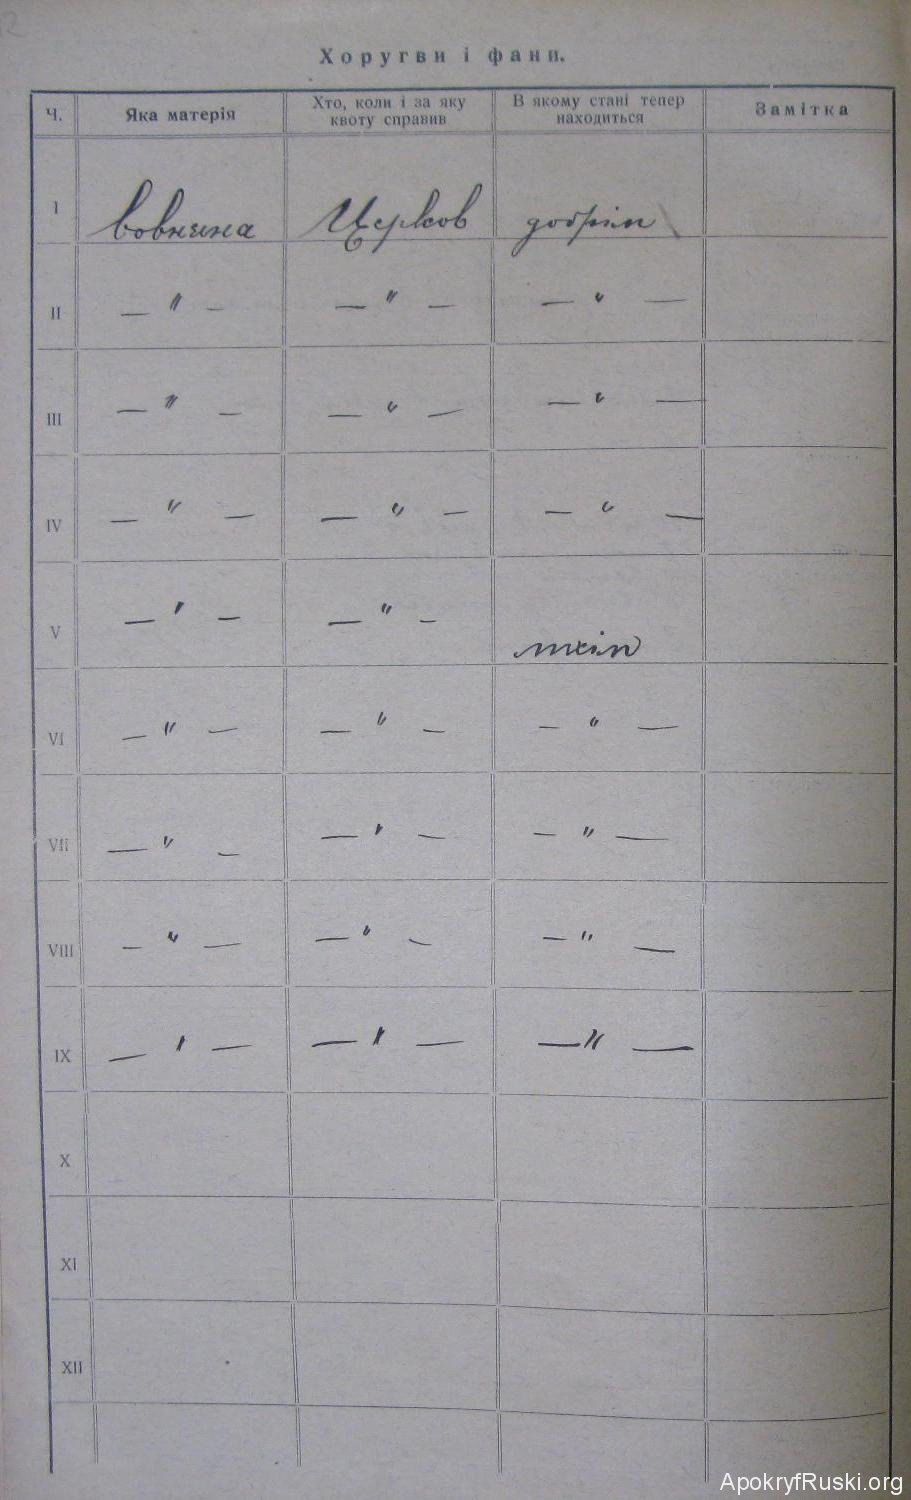 Хоругви і фани.
Ч. Яка матерія Хто, коли і за яку квоту справив В якому стані тепер находиться Замітка
I вовняна Церков добрім
II — " — — " — — " —
III — " — — " — — " —
IV — " — — " — — " —
V — " — — " —
VI — " — — " — — " —
VII — " — — " — — " —
VIII — " — — " — — " —
IX — " — — " — — " —
X
XI
XII
ApokryfRuski.org